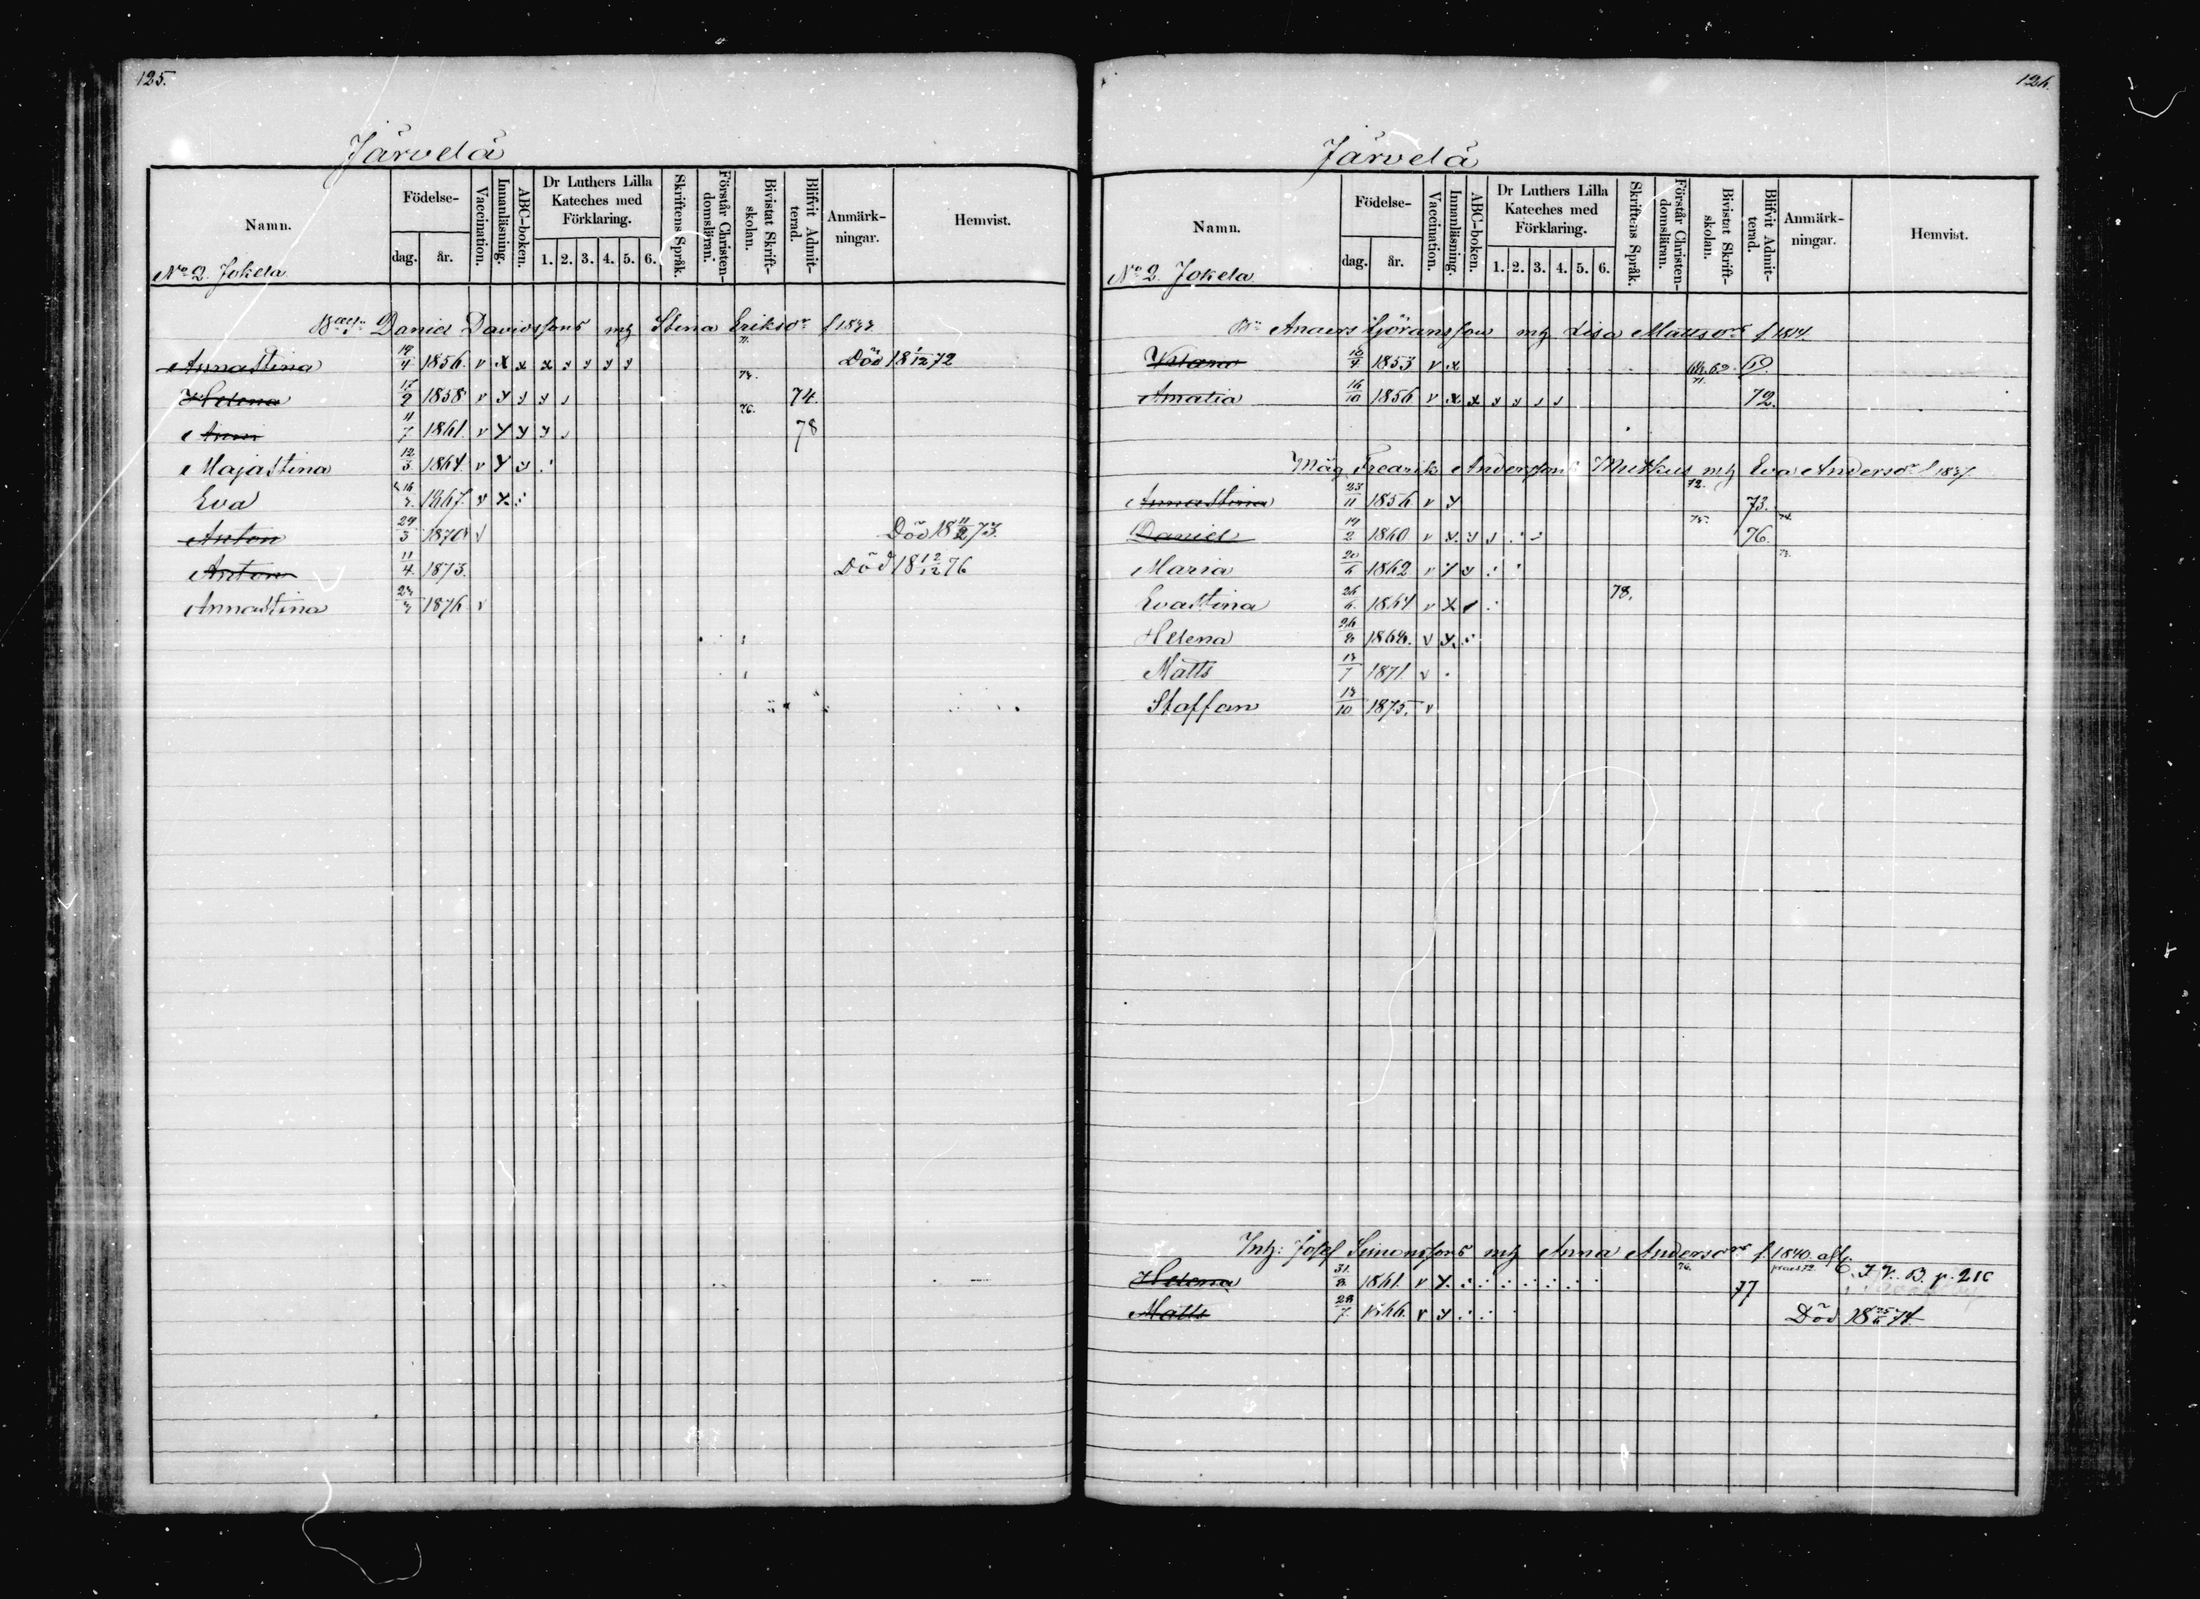 125.
Järvelä
Namn.
Födelse-
dag.
år.
Vaccination.
Innanläsning.
ABC-boken.
Dr Luthers Lilla
Kateches med
Förklaring.
1. 2. 3. 4. 5. 6.
Skriftens Språk.
Förstår Christen-
domsläran.
Bivistat Skrift-
skolan.
Blifvit Admit-
terad.
Anmärk-
ningar.
Hemvist.
No 2. Jokela
Daniel Davidssons mh Stena Eriksdr f 1833
Annastina 19/4 1856. v x x x Död 18 1/12 72
71.
Helena 17/2 1858 v y 74.
73.
Anni 11/7 1861. v y y y 78
76.
Majastina 12/3 1864 v y
Eva 1867. v x
Anton 29/3 1870 v Död 18 11/2 73.
Anton 11/4 1873. Död 18 12/12 76
Annastina 1876 v
126.
Järvelä
Namn.
Födelse-
dag.
år.
Vaccination.
Innanläsning.
ABC-boken.
Dr Luthers Lilla
Kateches med
Förklaring.
1. 2. 3. 4. 5. 6.
Skriftens Språk.
Förstår Christen-
domsläran.
Bivistat Skrift-
skolan.
Blifvit Admit-
terad.
Anmärk-
ningar.
Hemvist.
No 2. Jokela
Anders Göransson mh Lisa Mattsdr f 1814.
1853 v x 69.
71.
Amalia 16/10 1856 v x x 72.
Måg Fredrik Anderssons Mutkus mh Eva Andersdr f 1837.
72.
Annastina 23/11 1856 v y 73.
75.
Daniel 19/2 1860 v y 76.
Maria 20/6 1862 v y
Evastina 26/6 1864 v x 78.
Helena 1868. v y
Matts 1871. v
Staffan 13/10 1875. v
Inh: Josef Simonssons mh Anna Andersdr f. 1840.
76.
Helena 31/8 1861. v y 77 B. p. 210
Matts 28/7 1866. v y Död 18 25/6 74.